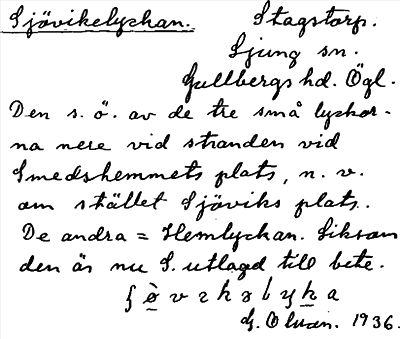 Sjövikelyckan. Stagstorp.
Ljung sn.
Gullbergs hd. Ögl.
Den s. ö. av de tre små lyckor-
na nere vid stranden vid
Smedshemmets plats, n. v.
om stället Sjöviks plats.
De andra = Hemlyckan. Liksom
den är nu S. utlagd till bete.
G. Olson. 1936.